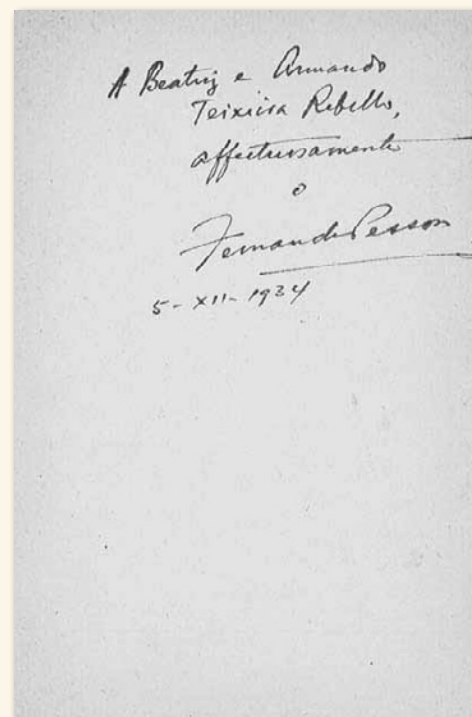 A Beatriz e Armando
Teixeira Rebello,
affectuosamente
o
Fernando Pessoa
5-XII-1934